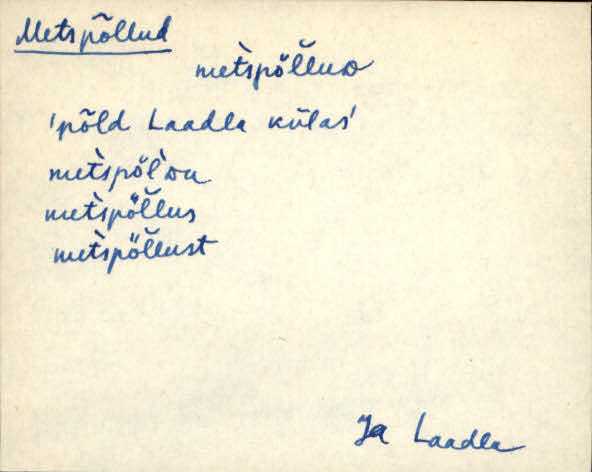 Metspõllud
met̀spõ̆lluᴅ
'põld Laadla külas'
met̀spõl̀ᴅu
met̀spõ̆llus
met̀spõ̆llust
Ja Laadla